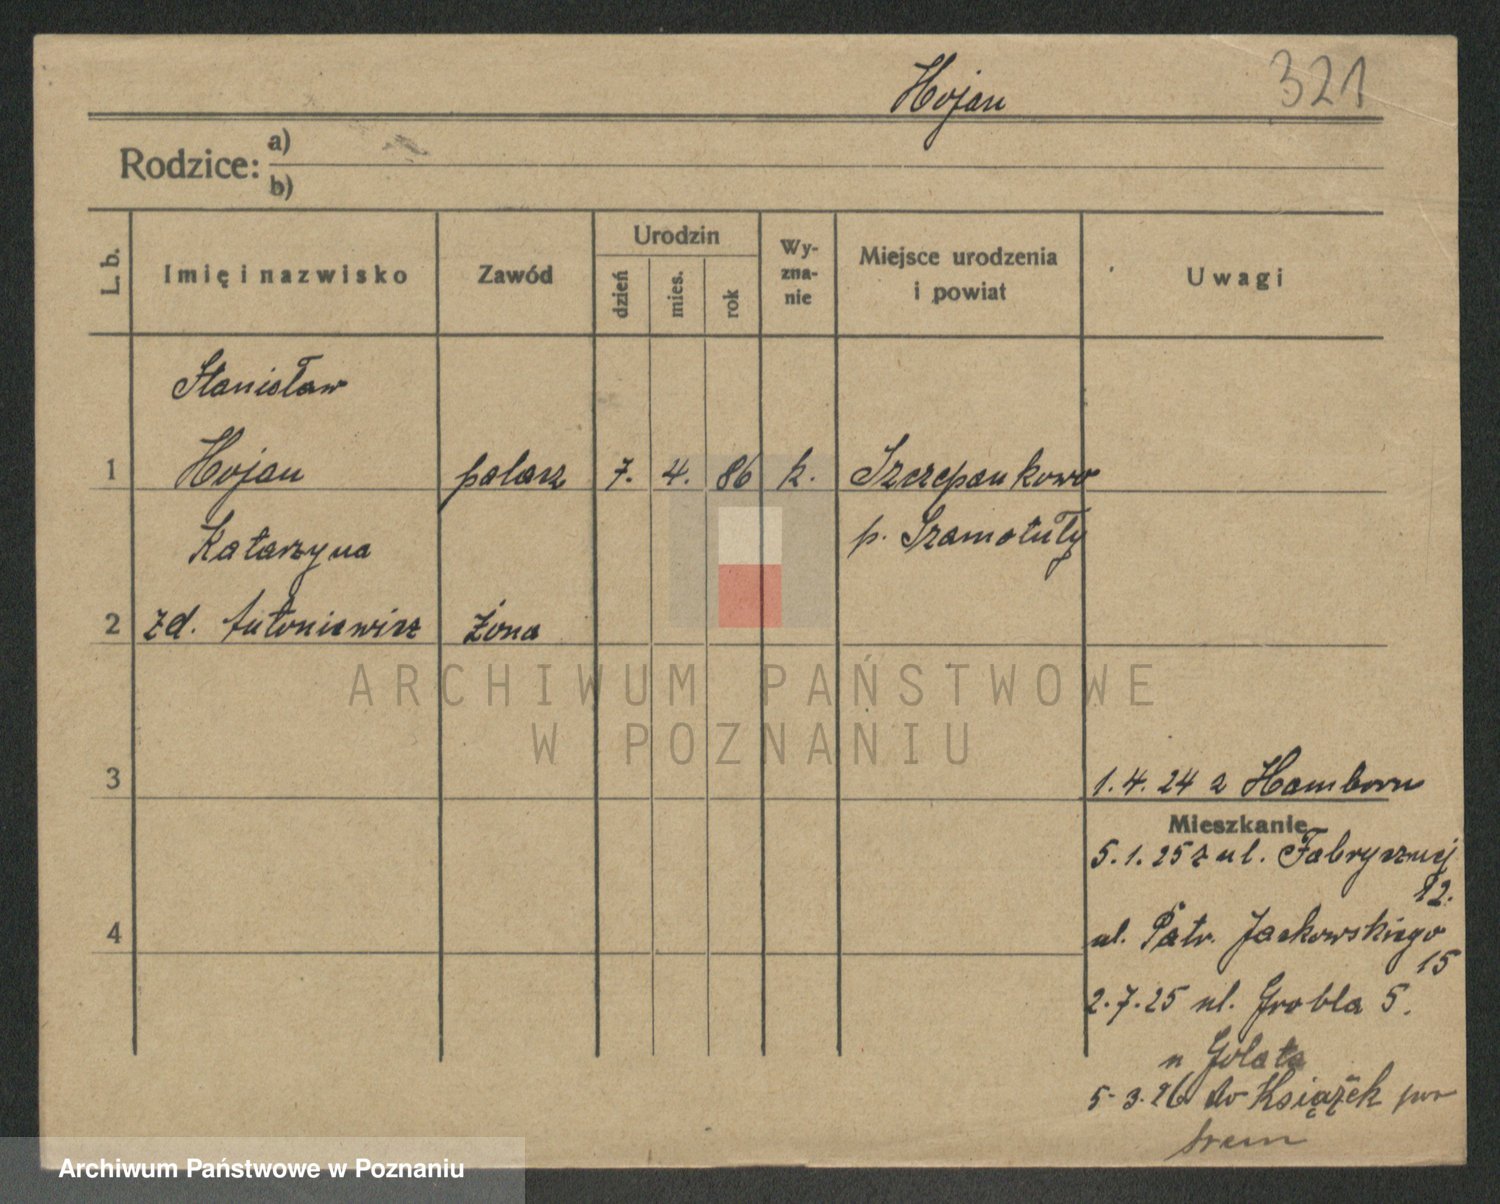 Hojan
321
Rodzice:
a)
b)
L. b.
Imię i nazwisko
Zawód
Urodzin
dzień
mies.
rok
Wy-
zna-
nie
Miejsce urodzenia
i powiat
Uwagi
Stanisław
1 Hojan palacz 7. 4. 86 k. Szczepankowo
Katarzyna
p. Szamotuły
2 zd. Antoniewicz żona
3
1.4.24 z Hamborn
Mieszkanie
5.1.25 z ul. Fabrycznej
12.
4
ul. Patr. Jackowskiego
15
2.7.25 ul. Grobla 5.
u Golata
5.3.26 do Książek pow
ARCHIWUM PAŃSTWOWE
W POZNANIU
Archiwum Państwowe w Poznaniu